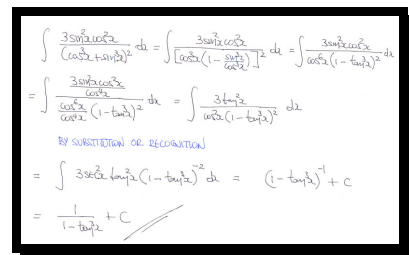 ∫ 3sin²x cos²x / (cos³x + sin³x)² dx = ∫ 3sin²x cos²x / [cos³x(1 - sin³x/cos³x)]² dx = ∫ 3sin²x cos²x / cos⁶x(1 - tan³x)² dx
= ∫ (3sin²x cos²x / cos⁴x) / ((cos⁶x / cos⁴x)(1 - tan³x)²) dx = ∫ 3tan²x / cos²x(1 - tan³x)² dx
BY SUBSTITUTION OR RECOGNITION
= ∫ 3sec²x tan²x(1 - tan³x)⁻² dx = (1 - tan³x)⁻¹ + C
= 1 / (1 - tan³x) + C